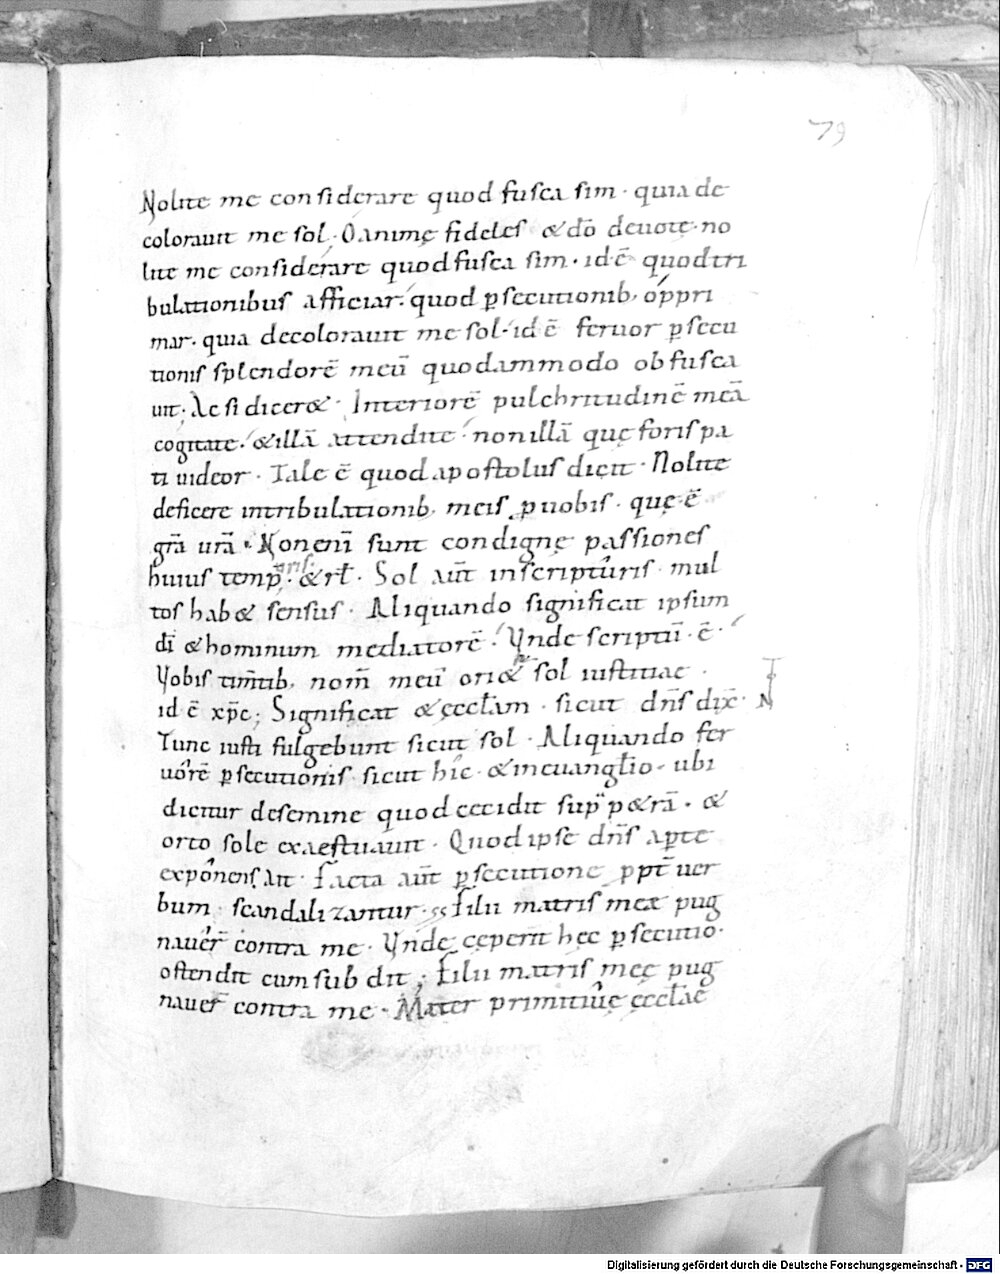 79
Nolite me considerare quod fusca sim · quia de
colorauit me sol · O animę fideles & dō deuotę · no
lite me considerare quod fusca sim · id ē quod tri
bulationibus afficiar · quod ꝑsecutionib; oppri
mar · quia decolorauit me sol · id ē feruor ꝑsecu
tionis splendorē meū quodammodo obfusca
uit; Ac si dicer& · Interiorē pulchritudinē meā
cogitate · & illā attendite · non illā quę foris pa
ti uideor · Tale ē quod apostolus dicit · Nolite
deficere in tribulationib; meis ꝑ uobis · quę ē
gr̄a ur̄a · Non eni̅ sunt condignę passiones
huius temp̱oris · & rł · Sol aut̄ in scripturis mul
tos hab& sensus · Aliquando significat ipsum
di̅ & hominum mediatorē · Vnde scriptū ē ·
Vobis tim̄tib; nom̄ meū ori&ur sol iustitiae ·
id ē xp̄c; Significat & ęccłam · sicut dn̄s dix̄ ·
Tunc iusti fulgebunt sicut sol · Aliquando fer
uorē ꝑsecutionis sicut hic · & in euangłio · ubi
dicitur de semine quod cecidit sup̱ p&rā · &
orto sole exaestuauit · Quod ipse dn̄s aꝑte
exponens ait · Facta aut̄ ꝑsecutione ꝓpt̄ uer
bum · scandalizantur · Filii matris meae pug
nauer̄ contra me · Vnde cęperit hęc ꝑsecutio ·
ostendit cum subdit; Filii matris meę pug
nauer̄ contra me · Mater primitiuę ęccłae
Digitalisierung gefördert durch die Deutsche Forschungsgemeinschaft - DFG